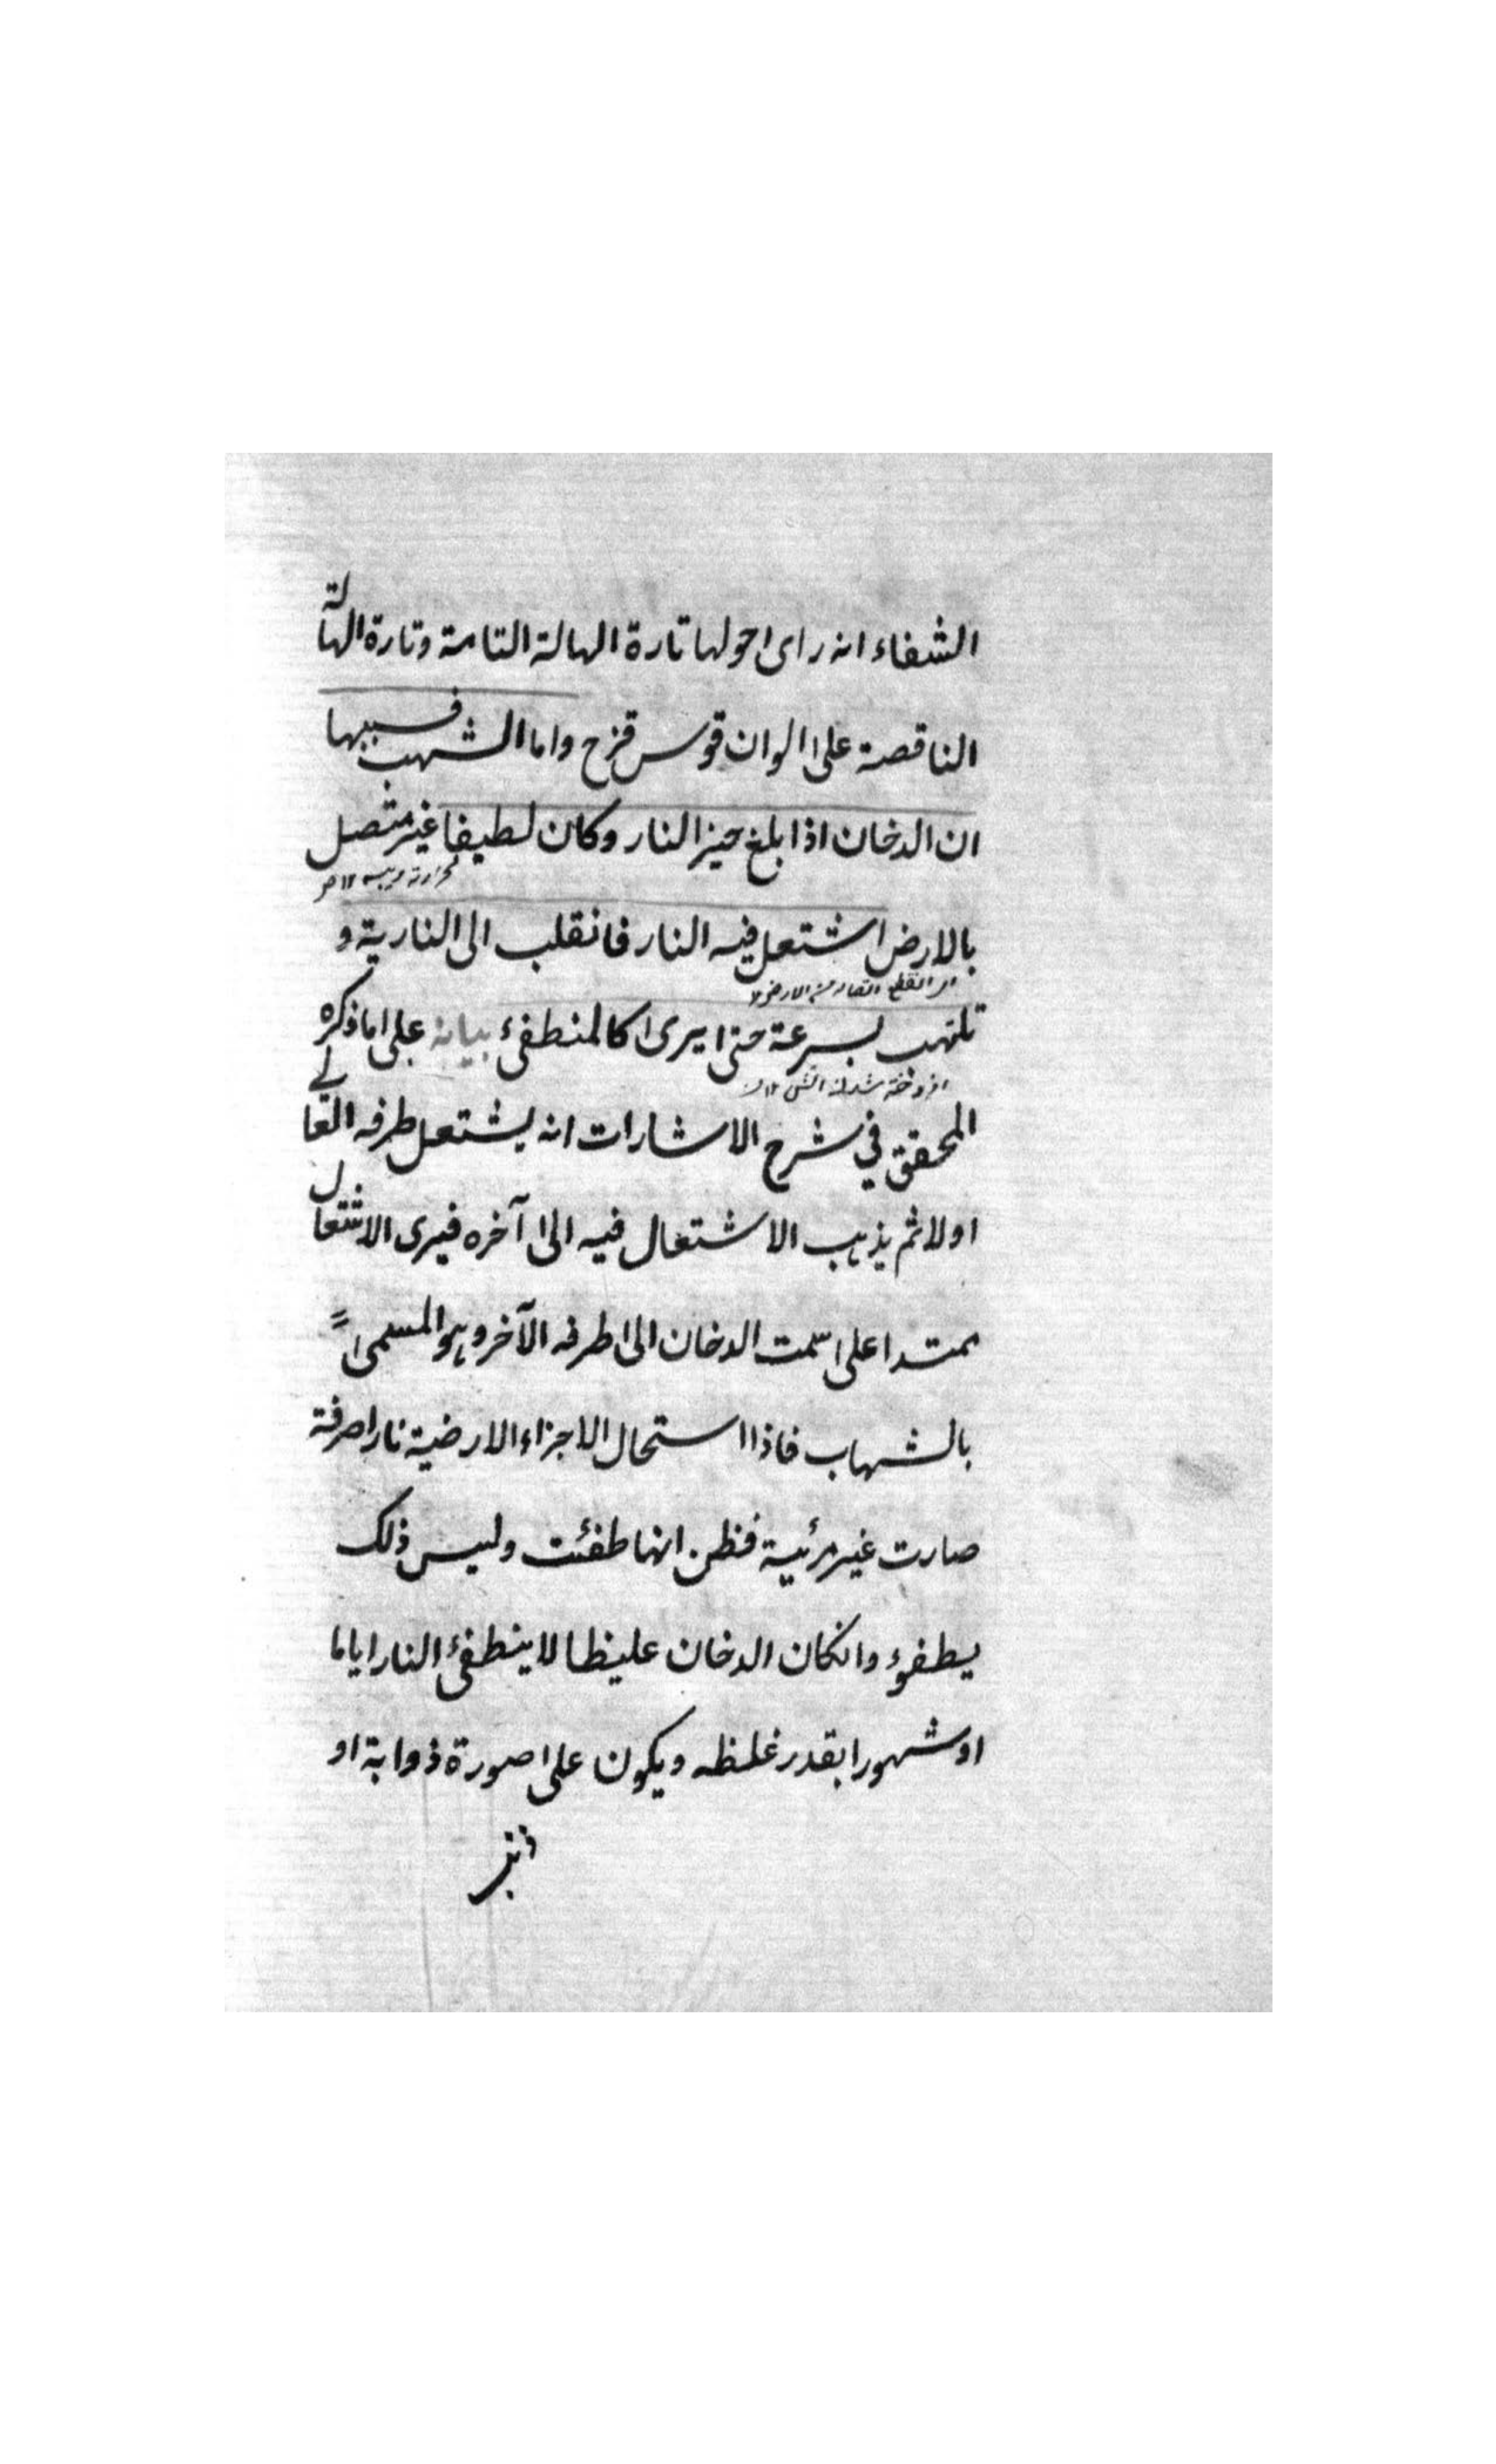 الشفاء انه رای حولها تارة الهالة التامة وتارة الهالة
الناقصة علی الوان قوس قزح واما الشهب فسببها
ان الدخان اذا بلغ حیز النار وکان لطیفا غیر متصل
بالارض اشتعل فیه النار فانقلب الی الناریة و
تلتهب بسرعة حتی یری کالمنطفئ بیانه علی ما ذکره
المحقق فی شرح الاشارات انه یشتعل طرفه العالی
اولا ثم یذهب الاشتعال فیه الی آخره فیری الاشتعال
ممتدا علی سمت الدخان الی طرفه الآخر وهو المسمی
بالشهاب فاذا استحال الاجزاء الارضیة نارا صرفة
صارت غیر مرئیة فظن انها طفئت ولیس ذلک
یطفوء وانکان الدخان غلیظا لا ینطفئ النار ایاما
او شهورا بقدر غلظه ویکون علی صورة ذوابة او
ذنب